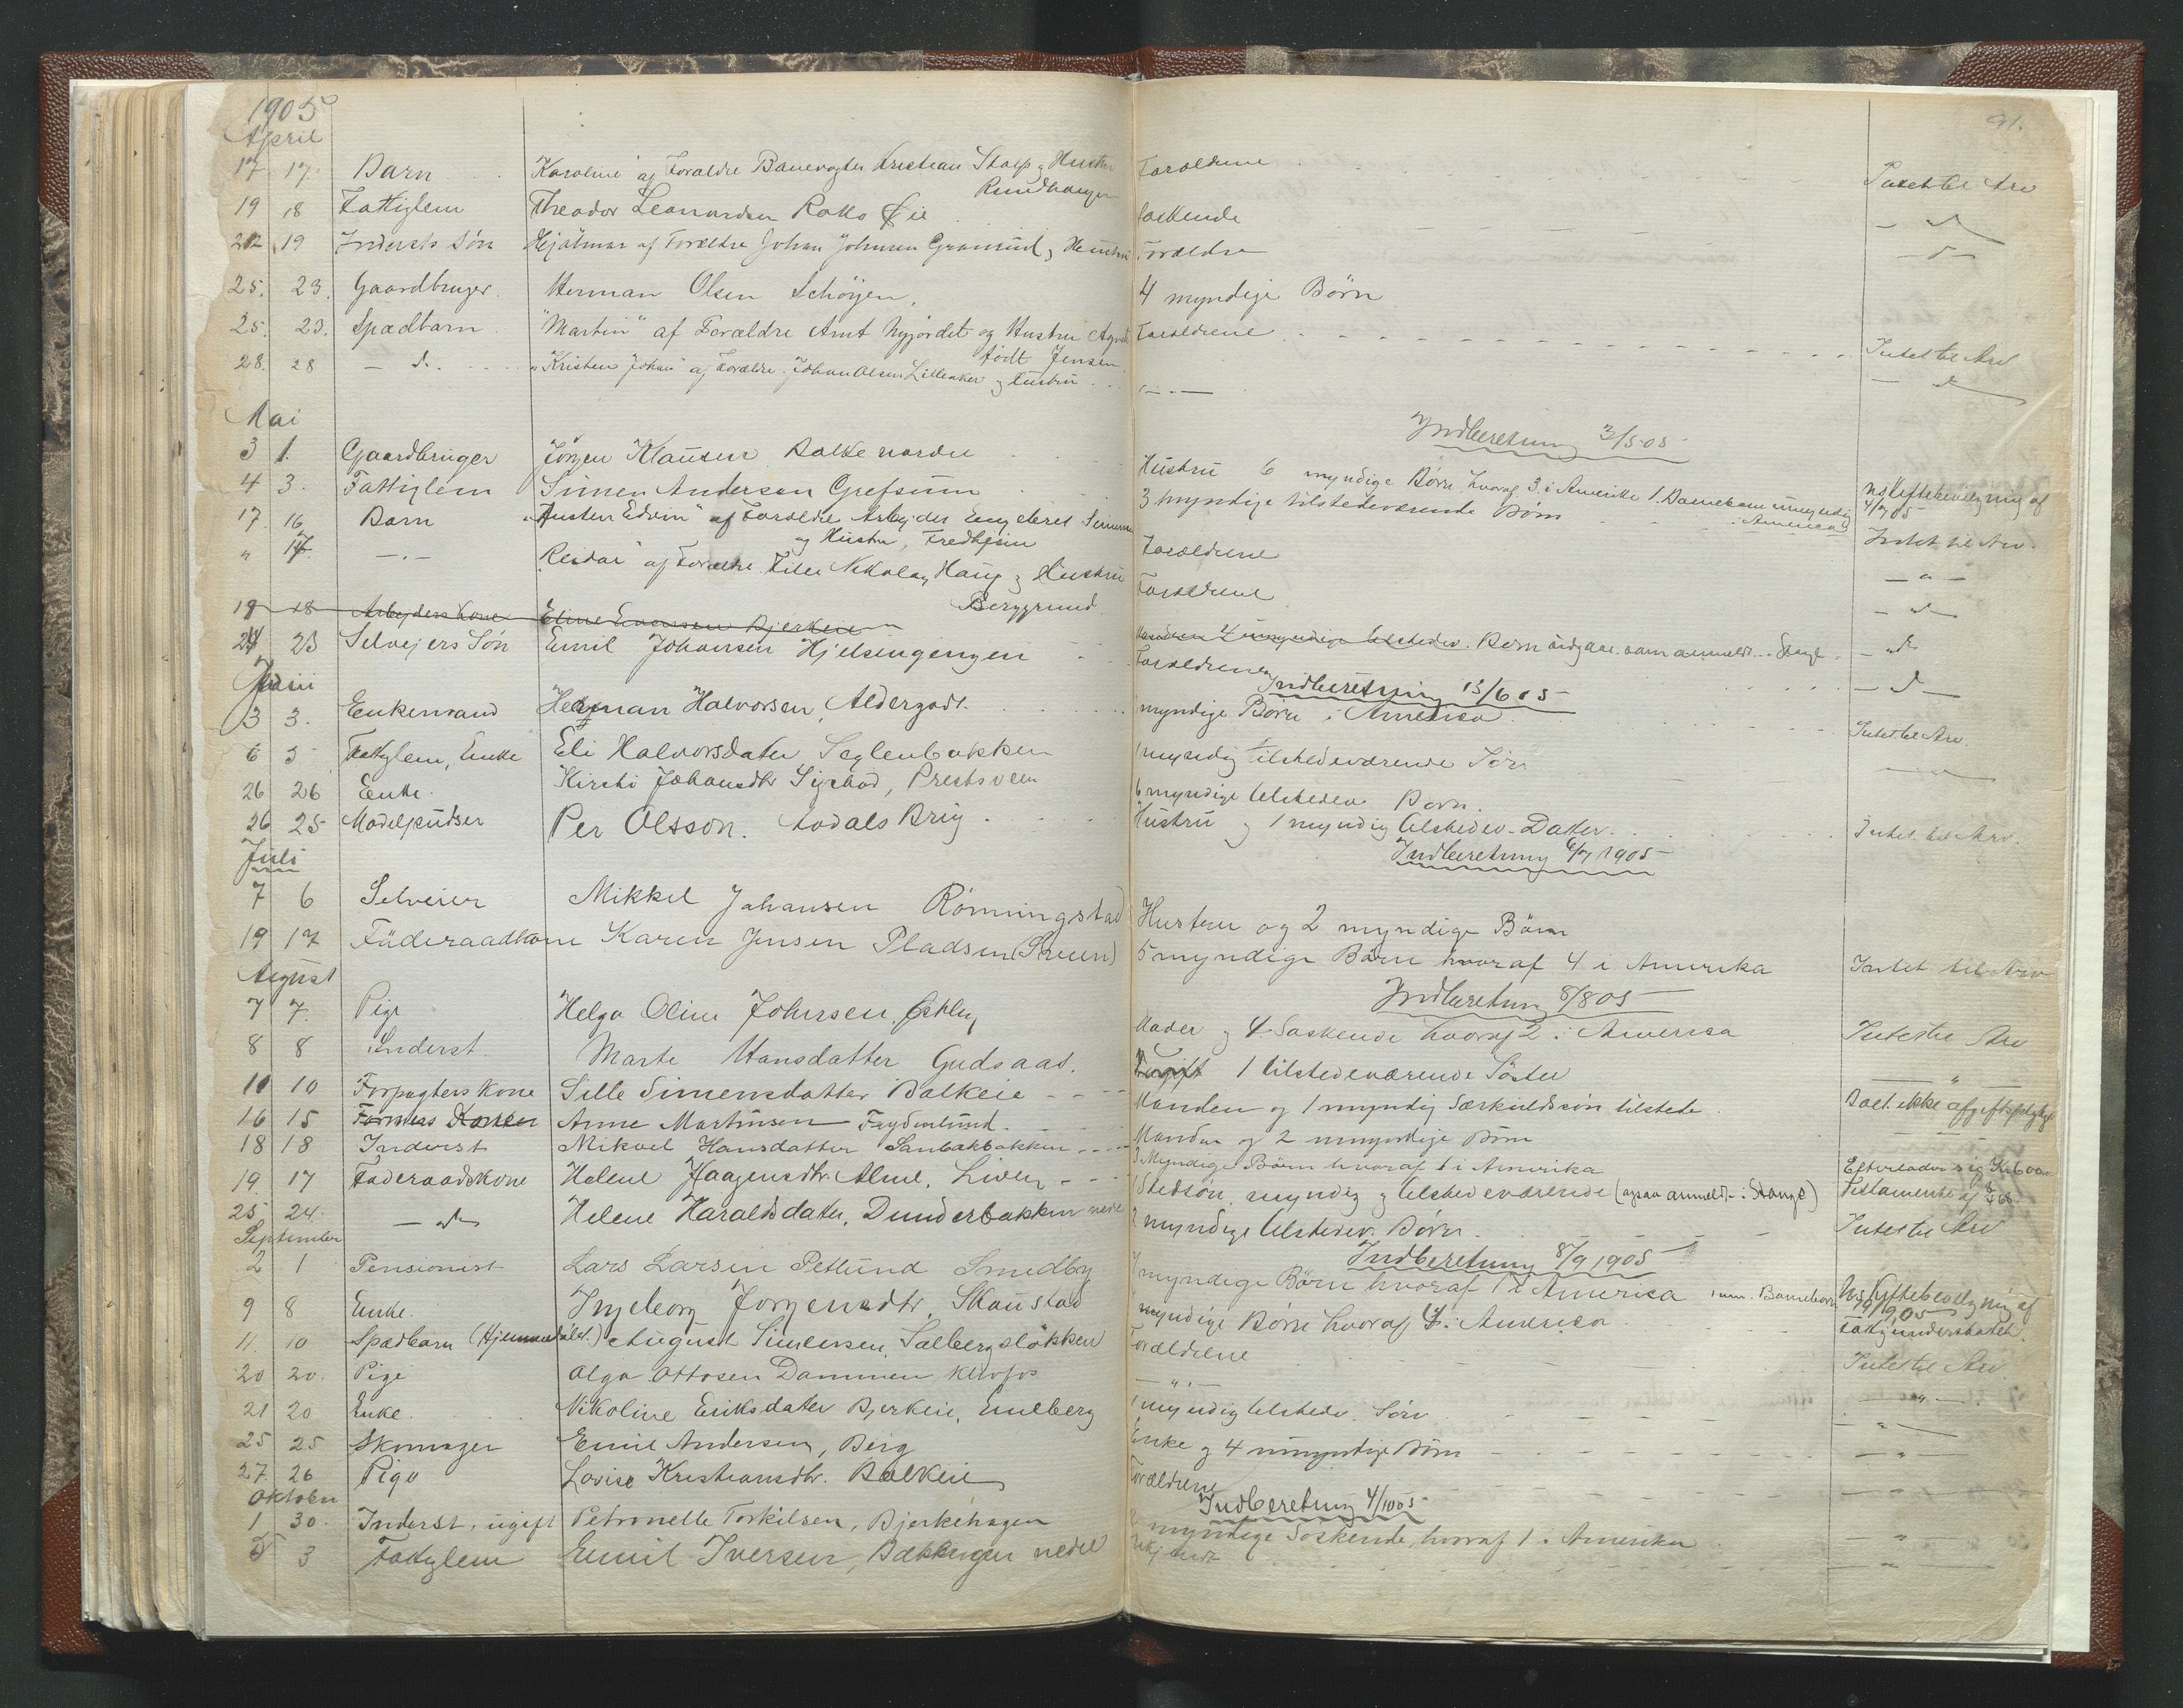 1905
91.
April
17 17. Barn Karoline af Forældre Banevogter Kristian Skolp og Hustru Forældrene Intet til Arv
Rundhaugen
19 18 Fattiglem Theodor Leonardsen Roko Søskende — d —
22 19 Indersts Søn Hjalmar af Forældre Johan Johnsen Gransund og Hustru Forældre — d —
25. 23. Gaardbruger Herman Olsen Schöyen. 4 myndige Börn
25. 23. Spædbarn "Martin" af Forældre Arnt Nyjordet og Hustru Forældrene Intet til Arv
födt Jensen
28. 28 — d. "Kristen Johan" af Forældre Johan Olsen Lilleaker og Hustru — . — — d —
Mai
Indberetning 3/5 05
3 1. Gaardbruger Jörgen Klausen Balke nordre Hustru 6 myndige Börn hvoraf 3 i Amerika 1 Barnebarn umyndig i America Uskiftebevilgning af 4/7 05
4 3. Fattiglem Simen Andersen Grefsum 3 myndige tilstedeværende Börn Intet til Arv.
17. 16 Barn "Austen Edvin" af Forældre Arbeider Forældrene — " —
og Hustru, Fredheim
" 17 — . — Reidar" af Forældre Nikolay Haug og Hustru Forældrene — d —
Berggrund
19 18 Arbeiders Kone Eline Evensen Bjerkeie Manden umyndige tilstedev. Börn — d —
24 23 Selvejers Sön Emil Johansen Hjelsengengen Forældrene — d —
Juni
Indberetning 13/6 05
3 3. Enkemand Herman Halvorsen, Aldergodt. myndige Börn i America Intet til Arv.
6 5 Fattiglem, Enke Eli Halvorsdatter Seglenbakken 1 myndig tilstedeværende Sön — " —
26 26 Enke. Kirsti Johansdtr Sigstad, Prestsveen 6 myndige tilstedev. Barn.
26 25 Modelpudser Per Olsson. Hustru og 1 myndig tilstedev. Datter. Intet til Arv.
Juli
Indberetning 6/7 1905
7 6 Selveier Mikkel Johansen Rönningstad Hustru og 2 myndige Börn
19 17 Föderaadkone Karen Jensen Pladsen 5 myndige Börn hvoraf 4 i Amerika Intet til Arv
August
Indberetning 8/8 05
7 7. Pige Helga Oline Johnsen, Östby Moder og 4 Søskende hvoraf 2 i America Intet til Arv
8 8 Inderst. Marte Hansdatter Gudsaas. 1 tilstedeværende Söster — " —
10 10 Forpagters Kone Sille Simensdatter Balkeie Manden og 1 myndig Særkuldssön tilstede. Boet ikke afgiftspligtig
16 15 Anne Martinsen Frydenlund. Manden og 2 umyndige Börn
18 18 Inderst Mikael Hansdatter Sandbakbakken 3 Myndige Börn hvoraf 1 i Amerika Efterlader sig Kr. 600
19. 17 Föderaadskone Helene Haagensdtr. Alme, Lien 1 Stedsön, myndig og tilstedeværende (ogsaa anmeldt i Stange) Testamente af
25 24. — d — Helene Haraldsdatter, Dunderbakken nedre 2 myndige tilstedev. Börn. Intet til Arv
September
Indberetning 8/9 1905
2 1 Pensionist Lars Larsen Petlund Smedby 7 myndige Börn hvoraf 1 i America 1 um. Barnebarn Uskiftebevilgning af 19/9 05
9 8 Enke. Ingeborg Jorgensdtr. Skaustad myndige Börn hvoraf 4 i America fattigunderstöttet.
11. 10 Spædbarn August Simensen, Solbergslökken Forældrene Intet til Arv
20 20. Pige Olga Ottosen Dammen, Klufos — " — — " —
21 20 Enke. Nikoline Eriksdatter Bjerkeie, Emelberg 1 myndig tilstedev. Sön — " —
25 25 Skomager Emil Andersen, Berg Enke og 4 umyndige Börn — " —
27. 26 Pige Lovise Kristiansdtr. Balkeie Forældrene — " —
Oktober
Indberetning 4/10 05
1 30. Inderst, ugift Petronelle Torkilsen, Bjerkehagen 2 myndige Søskende, hvoraf 1 i Amerika — " —
5 3 Fattiglem Emil Iversen, Bækkengen nedre Ukjendt — " —